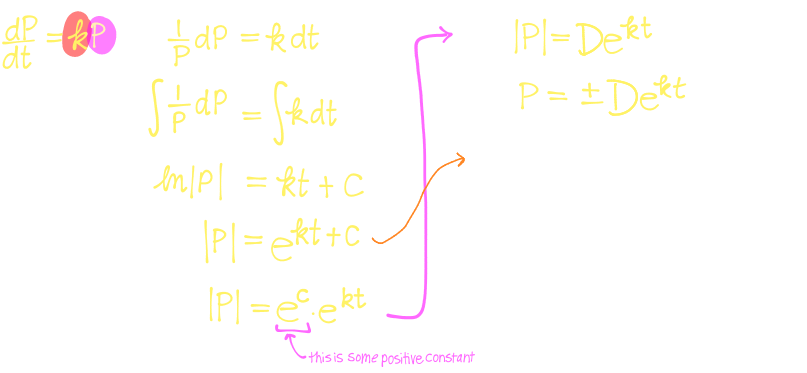 dP/dt = kP
1/P dP = k dt
∫ 1/P dP = ∫ k dt
ln|P| = kt + C
|P| = e^(kt+C)
|P| = e^C · e^(kt)
this is some positive constant
|P| = De^(kt)
P = ± De^(kt)